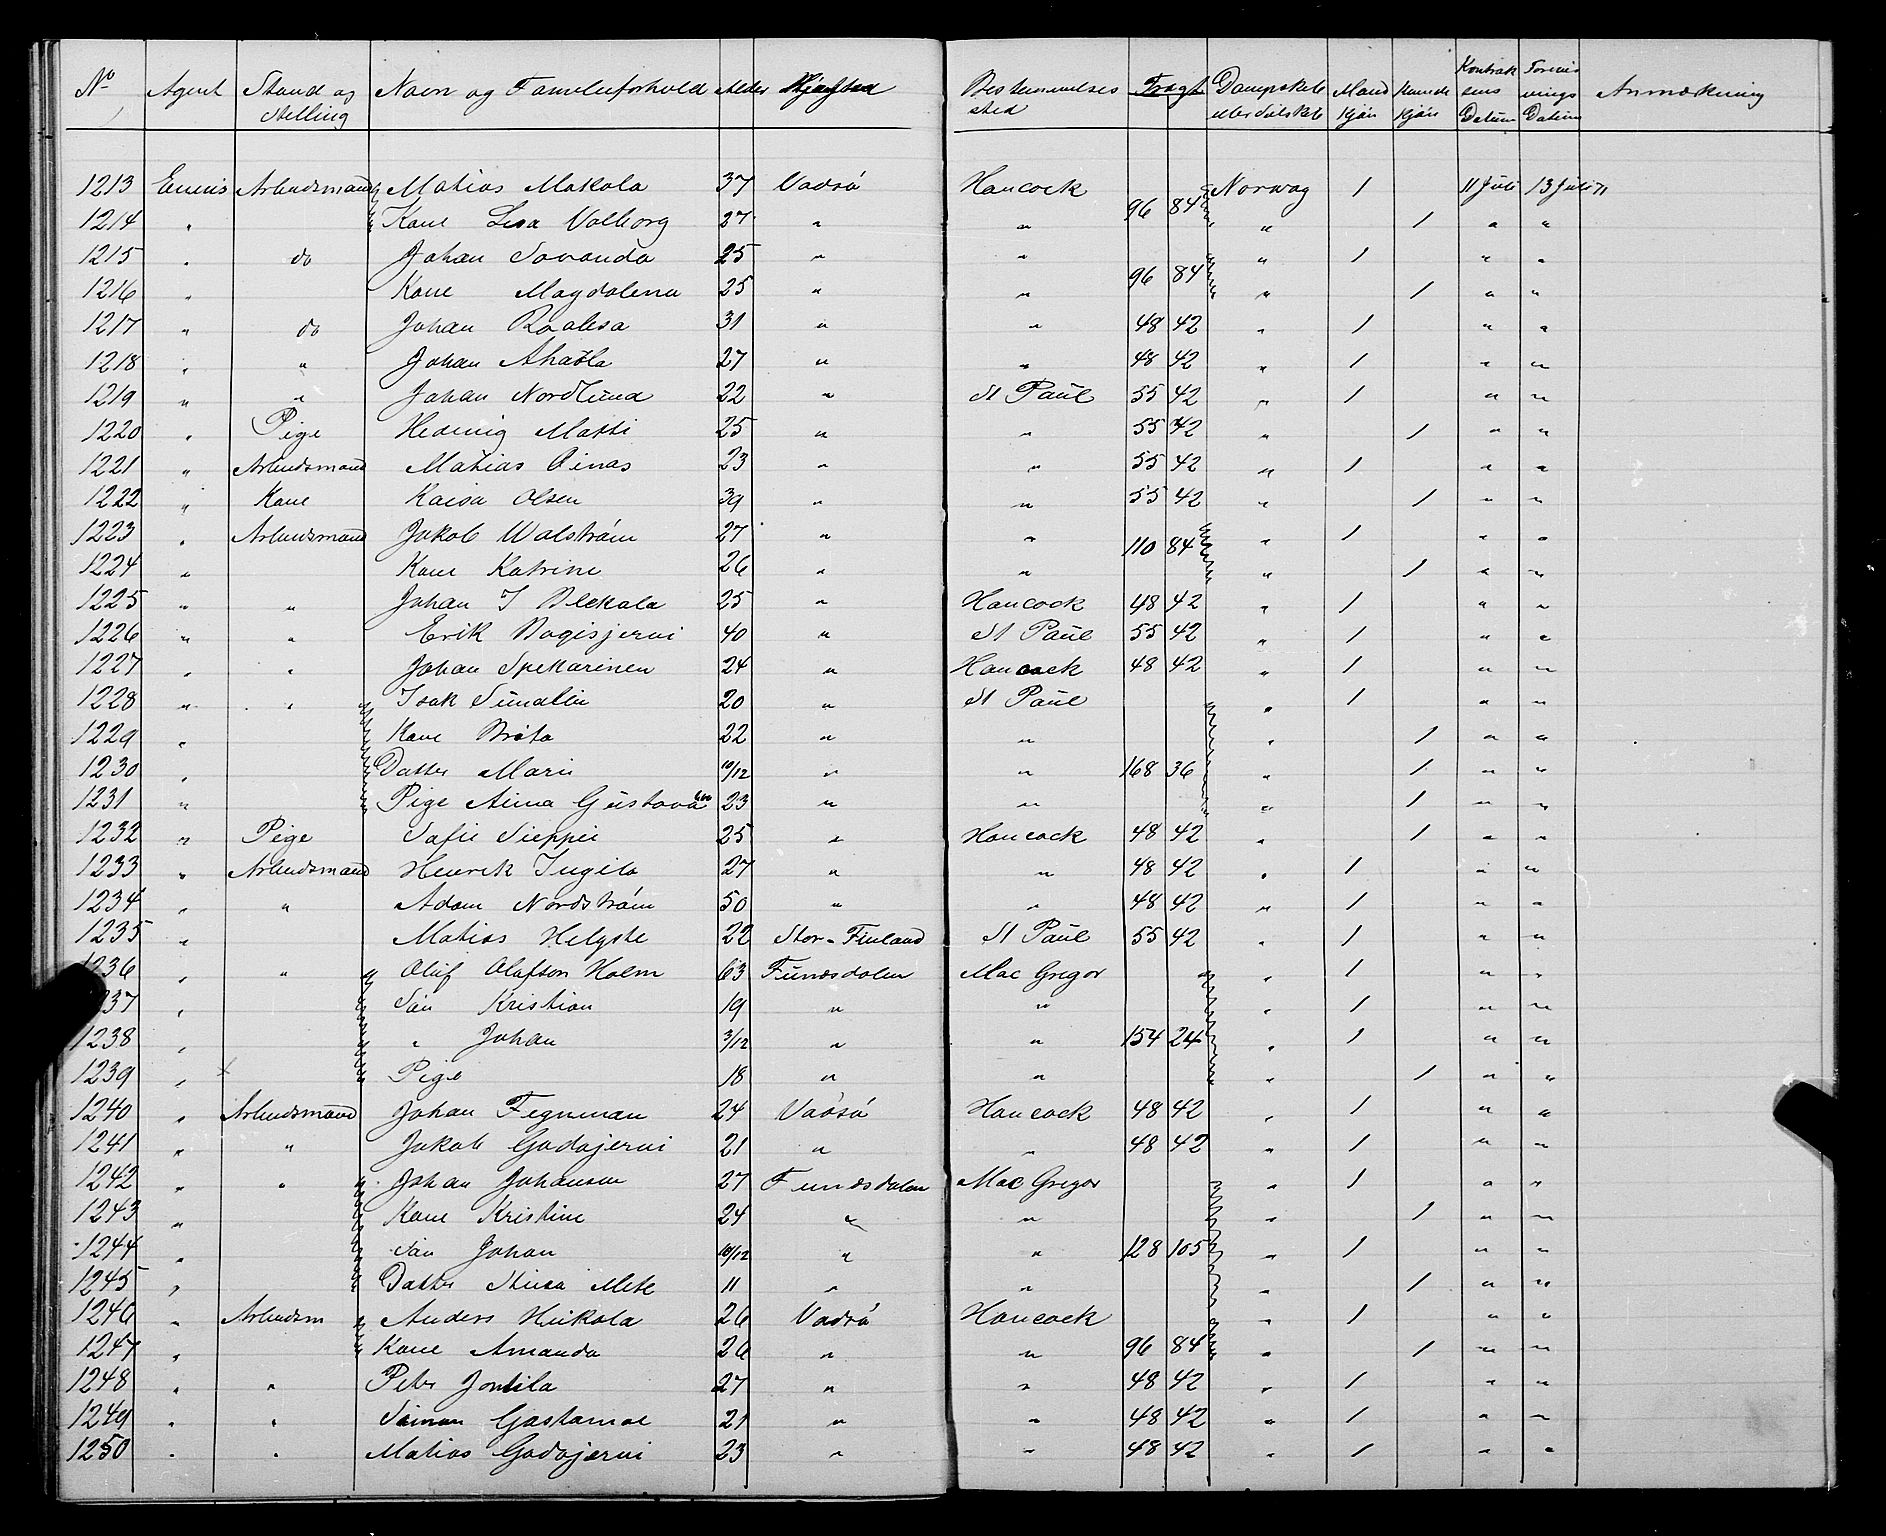 No Agent Stand og Stilling Navn og Familieforhold Alder Hjemsted Bestemmelses sted Fragt Dampskib eller Seilskib Mand kjön Kvinde kjön Kontrak tens Datum Datum Anmærkning
1213 Arbeidsmand Matias Makola 37 Vadsö Hancock Norway 1 11 Juli 13 Juli 71
1214 " Kone Lisa Valborg 27 " " 96 84 " 1 " "
1215 " do Johan Savanda 25 " " " 1 " "
1216 " Kone Magdalena 25 " " 96 84 " 1 " "
1217 " do Johan 31 " " 48 42 " 1 " "
1218 " " Johan 27 " " 48 42 " 1 " "
1219 " " Johan Nordlund 22 " St Paul 55 42 " 1 " "
1220 " Pige Hedvig Matti 25 " " 55 42 " 1 " "
1221 " Arbeidsmand Matias 23 " " 55 42 " 1 " "
1222 " Kone Kaisa Olsen 39 " " 55 42 " 1 " "
1223 " Arbeidsmand Jakob Walström 27 " " " 1 " "
1224 " Kone Katrine 26 " " 110 84 " 1 " "
1225 " " Johan I 25 " Hancock 48 42 " 1 " "
1226 " " Erik 40 " St Paul 55 42 " 1 " "
1227 " " Johan Spekarinen 24 " Hancock 48 42 " 1 " "
1228 " " Isak Sundlin 20 " St Paul " 1 " "
1229 " Kone Brita 22 " " " 1 " "
1230 " Datter Marie 10/12 " " 168 36 " 1 " "
1231 " Pige Gustava 23 " " " 1 " "
1232 " Pige Sofie Sieppi 25 " Hancock 48 42 " 1 " "
1233 " Arbeidsmand Henrik Ingila 27 " " 48 42 " 1 " "
1234 " " Adam Nordström 50 " " 48 42 " 1 " "
1235 " Matias 22 Stor-Finland St Paul 55 42 " 1 " "
1236 " " Oluf Olafson Holm 63 Funæsdalen Mac Gregor " 1 " "
1237 " Sön Kristian 19 " " " 1 " "
1238 " " Johan 3/12 " " 154 24 " 1 " "
1239 " x Pige 18 " " " 1 " "
1240 " Arbeidsmand Johan 24 Vadsö Hancock 48 42 " 1 " "
1241 " " Jakob Godajervi 21 " " 48 42 " 1 " "
1242 " " Johan Johansen 27 Funæsdalen Mac Gregor " 1 " "
1243 " Kone Kristine 24 " " " 1 " "
1244 " Sön Johan 10/12 " " 128 105 " 1 " "
1245 " Datter Stina 11 " " " 1 " "
1246 " Arbeidsm Anders Heikola 26 Vadsö Hancock " 1 " "
1247 " Kone Amanda 26 " " 96 84 " 1 " "
1248 " " Peter 27 " " 48 42 " 1 " "
1249 " " Simon 21 " " 48 42 " 1 " "
1250 " " Matias Godajervi 23 " " 48 42 " 1 " "